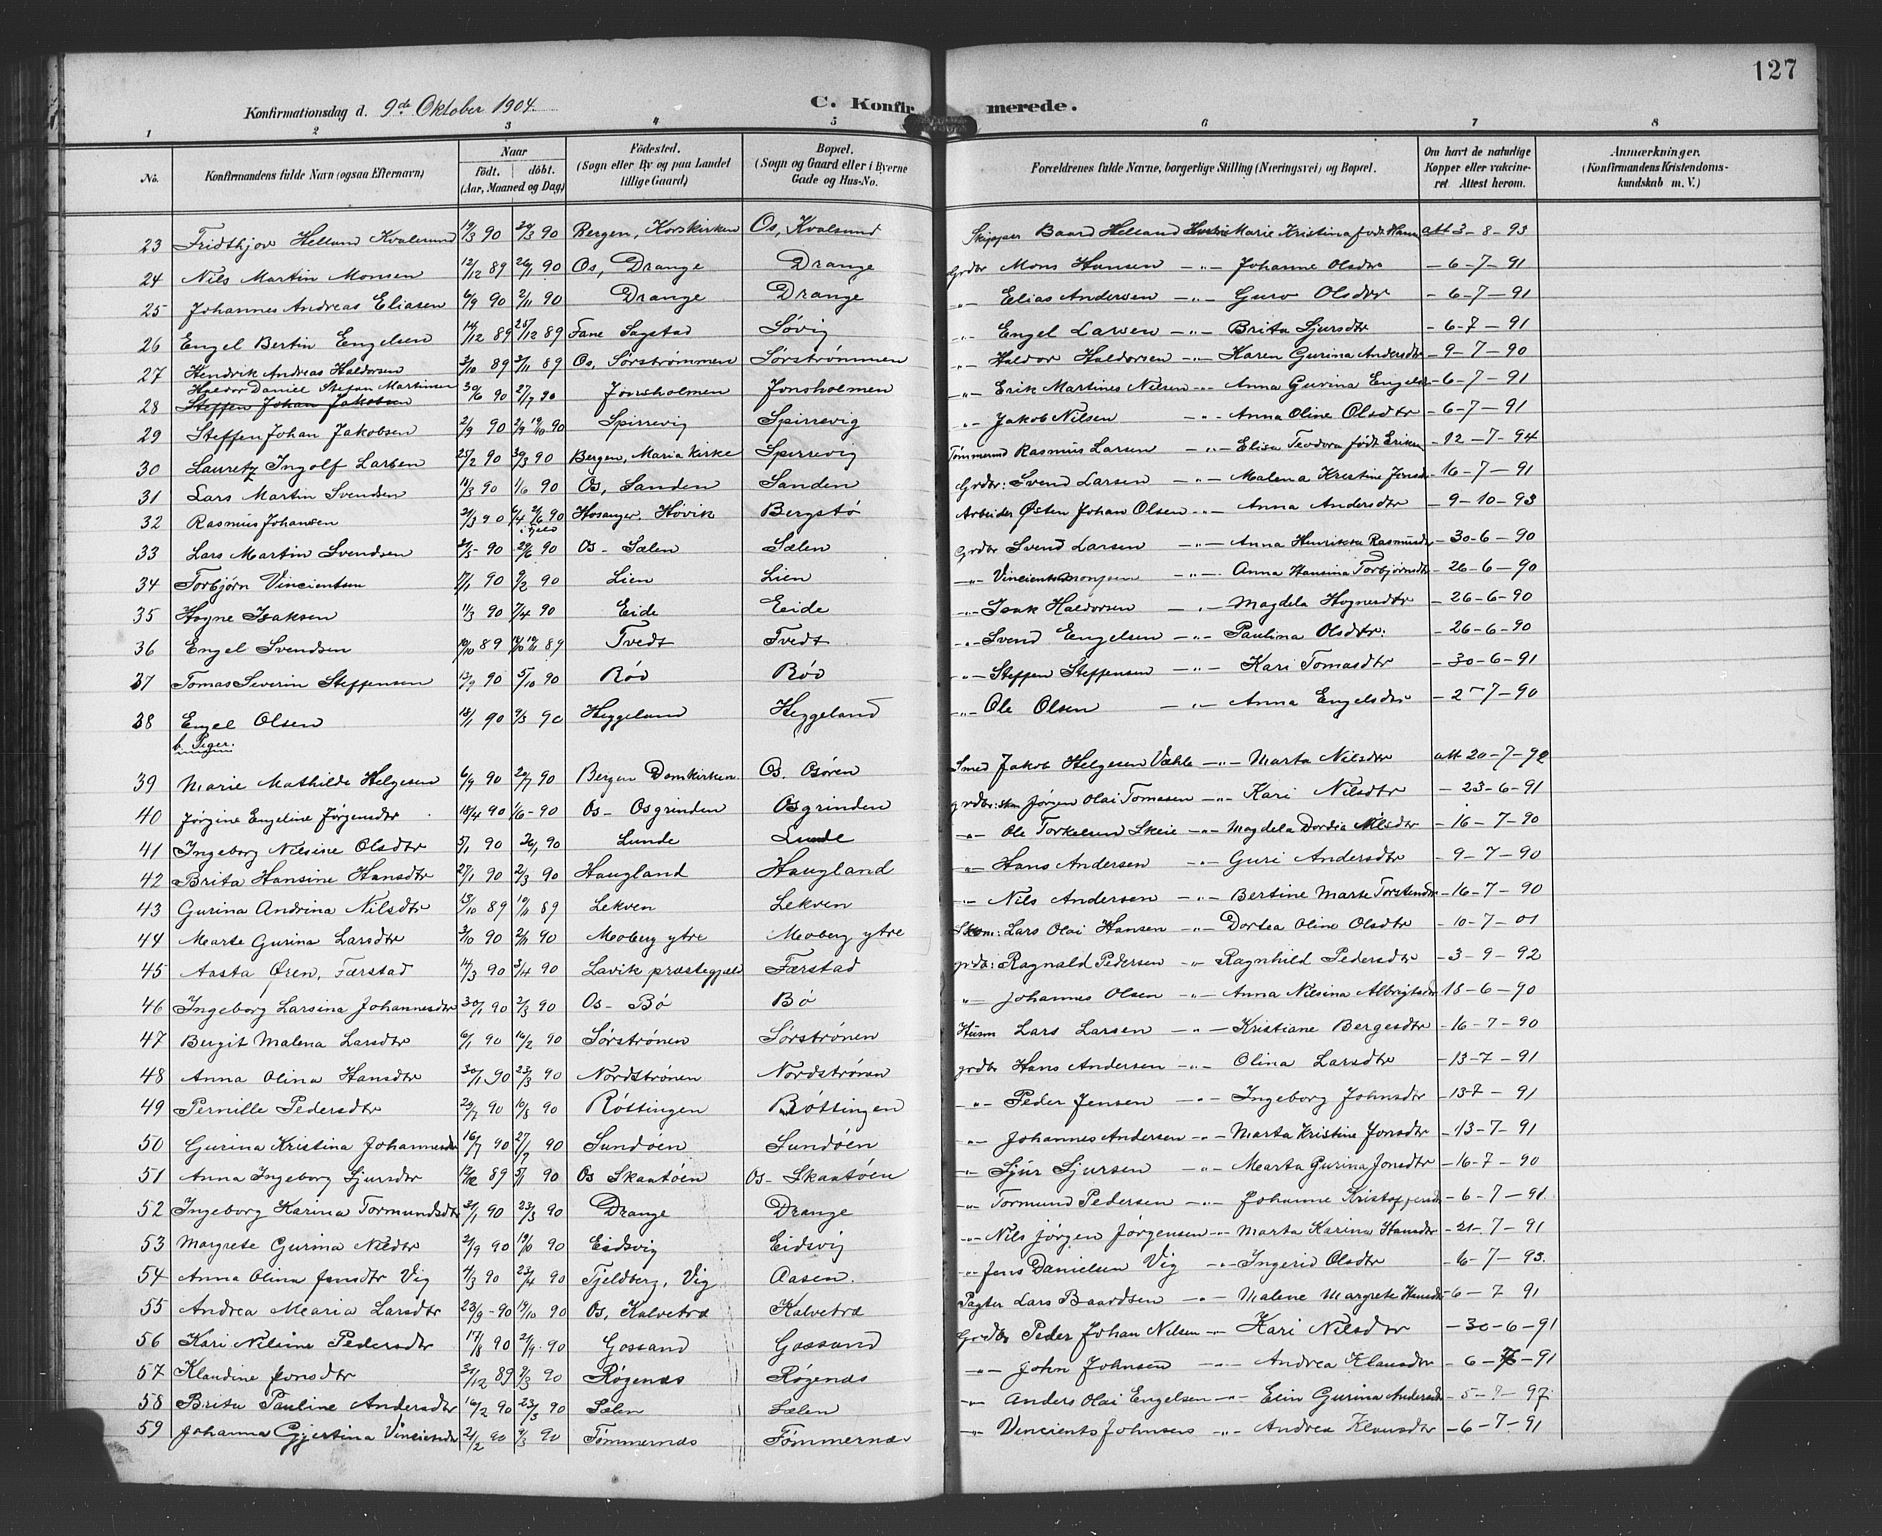 127
Konfirmationsdag d. 9de Oktober 1904.
C. Konfirmerede.
1 2 3 4 5 6 7 8
No. Konfirmandens fulde Navn (ogsaa Efternavn) Naar født. døbt. (Aar, Maaned og Dag) Fødested. (Sogn eller By og paa Landet tillige Gaard) Bopæl. (Sogn og Gaard eller i Byerne Gade og Hus-No. Forældrenes fulde Navne, borgerlige Stilling (Næringsvei) og Bopæl. Om havt de naturlige Kopper eller vaccineret. Attest herom. Anmærkninger. (Konfirmandens Kristendomskundskab m. V.)
23 Fridthjov Helland Kvalesund 19/3 90 29/3 90 Bergen, Korskirken Os, Kvalsund Skipper Baard Helland Hustru Marie Kristina født Hansen att 3-8-93
24 Nils Martin Monsen 12/12 89 26/1 90 Os, Drange Drange Grdbr Mons Hansen -"- Johanne Olsdtr - 6-7-91
25 Johannes Andreas Eliasen 6/9 90 2/11 90 Drange Drange -"- Elias Andersen -"- Guro Olsdtr - 6-7-91
26 Engel Bertin Engelsen 14/12 89 25/12 89 Fane Sagstad Søvig -"- Engel Larsen -"- Brita Sjursdtr - 6-7-91
27 Hendrik Andreas Haldorsen 3/10 89 3/11 89 Os, Sørstrømmen Sørstrømmen -"- Haldor Haldorsen -"- Karen Gurina Andersdtr - 9-7-90
Haldor Daniel Stefan Martinsen
28 Steffen Johan Jakobsen 30/6 90 27/7 90 Jonsholmen Jonsholmen -"- Erik Martines Nilsen -"- Anna Gurina Engelsdtr - 6-7-91
29 Steffen Johan Jakobsen 2/9 90 19/10 90 Spirrevig Spirrevig -"- Jakob Nilsen -"- Anna Oline Olsdtr - 6-7-91
30 Lauretz Ingolf Larsen 25/2 90 30/3 90 Bergen, Mariakirke Spirrevig Tømmermd Rasmus Larsen -"- Elisa Teodora født Eriksen - 12-7-94
31 Lars Martin Svendsen 14/3 90 1/6 90 Os, Sanden Sanden Grdbr: Svend Larsen -"- Malena Kristine Jonsdtr - 16-7-91
32 Rasmus Johansen 21/3 90 6/4 90 Hosanger, Høvik Bergstø Arbeider Østen Johan Olsen -"- Anna Andersdtr - 9-10-93
33 Lars Martin Svendsen 90 90 Os - Sælen Sælen Grdbr Svend Larsen -"- Anna Henrikka Rasmusdtr - 30-6-90
34 Torbjørn Vincientsen 17/1 90 9/2 90 Lien Lien -"- Vincients Monsen -"- Anna Hansina Torbjørnsdtr - 26-6-90
35 Hogne Isaksen 11/3 90 7/4 90 Eide Eide -"- Isak Haldorsen -"- Magdela Hognesdtr - 26-6-90
36 Engel Svendsen 89 89 Tvedt Tvedt -"- Svend Engelsen -"- Paulina Olsdtr: - 26-6-90
37 Tomas Severin Steffensen 13/9 90 5/10 90 Røo Røo -"- Steffen Steffensen -"- Kari Tomasdtr - 30-6-91
38 Engel Olsen 18/1 90 9/3 90 Heggeland Heggeland -"- Ole Olsen -"- Anna Engelsdtr - 2-7-90
b. Piger.
39 Marie Mathilde Helgesen 6/9 90 20/7 90 Bergen Domkirken Os. Osøren Smed Jakob Helgesen Væhle -"- Marta Nilsdtr att 20-7-92
40 Jørgine Engeline Jørgensdtr 18/4 90 1/6 90 Os - Osgrinden Osgrinden grdbr: skm Jørgen Olai Tomasen -"- Kari Nilsdtr - 23-6-91
41 Ingeborg Nilsine Olsdtr 5/1 90 26/1 90 Lunde Lunde -"- Ole Torkelsen Skeie -"- Magdela Dordia Nilsdtr - 16-7-90
42 Brita Hansine Hansdtr 27/1 90 2/3 90 Haugland Haugland -"- Hans Andersen -"- Guri Andersdtr - 9-7-90
43 Gurina Andrina Nilsdtr 15/10 89 19/11 89 Lekven Lekven -"- Nils Andersen -"- Bertine Marte Torstensdtr - 16-7-90
44 Marte Gurina Larsdtr 3/10 90 2/11 90 Moberg ytre Moberg ytre Skom: Lars Olai Hansen -"- Dortea Oline Olsdtr - 10-7-01
45 Aasta Øren, Færstad 14/3 90 3/4 90 Lavik præstegjæld Færstad grdbr: Ragnald Pedersen -"- Ragnhild Pedersdtr - 3-9-92
46 Ingeborg Larsina Johannesdtr 30/1 90 2/3 90 Os - Bø Bø -"- Johannes Olsen -"- Anna Nilsina Albrigtsdtr 18-6-90
47 Bergit Malena Larsdtr 6/1 90 16/2 90 Sørstrønen Sørstrønen Husm Lars Larsen -"- Kristiane Bergesdtr - 16-7-90
48 Anna Olina Hansdtr 30/1 90 23/3 90 Nordstrønen Nordstrønen grdbr Hans Andersen -"- Olina Larsdtr - 13-7-91
49 Pernille Pedersdtr 20/7 90 10/8 90 Røttingen Røttingen -"- Peder Jensen -"- Ingeborg Johnsdtr - 13-7-91
50 Gurina Kristina Johannesdtr 16/7 90 27/7 90 Sundøen Sundøen -"- Johannes Andersen -"- Marta Kristine Jonsdtr - 13-7-91
51 Anna Ingeborg Sjursdtr 12/12 89 5/1 90 Os Skaatøen Os - Skaatøen -"- Sjur Sjursen -"- Marta Gurina Jonsdtr - 16-7-90
52 Ingeborg Karina Tormundsdtr 31/1 90 23/3 90 Drange Drange -"- Tormund Pedersen -"- Johanne Kristoffersdtr - 6-7-91
53 Margrete Gurina Nilsdtr 21/9 90 19/10 90 Eidsvig Eidsvig -"- Nils Jørgen Jørgensen -"- Marta Karina Hansdtr - 21-7-91
54 Anna Olina Jensdtr Vig 4/3 90 23/4 90 Tjeldberg, Vig Aasen. -"- Jens Danielsen Vig -"- Ingerid Olsdtr - 6-7-93.
55 Andrea Maria Larsdtr 23/9 90 19/10 90 Os, Kalvetræ Kalvetræ Pagter Lars Baardsen -"- Malene Margrete Hansdtr - 6-7 91
56 Kari Nilsine Pedersdtr 17/8 90 21/9 90 Gossand Gossand Grdbr Peder Johan Nilsen -"- Kari Nilsdtr - 30-6-91
57 Klaudine Jonsdtr 31/12 89 2/3 90 Røgenæs Røgenæs -"- John Johnsen -"- Andrea Klausdtr - 6-7-91
58 Brita Pauline Andersdtr 16/2 90 23/3 90 Sælen Sælen -"- Anders Olai Engelsen -"- Elin Gurina Andersdtr - 5-7-97.
59 Johanna Gjertina Vincientsdtr 21/2 90 9/3 90 Tømmernæs Tømmernæs -"- Vincients Johnsen -"- Andrea Klausdtr - 6-7-91